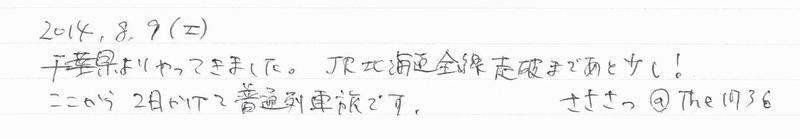 2014, 8, 9 (土)
千葉県よりやってきました。 JR北海道全線走破まであと少し!
ここから 2日かけて普通列車旅です。 さささっ @The1036